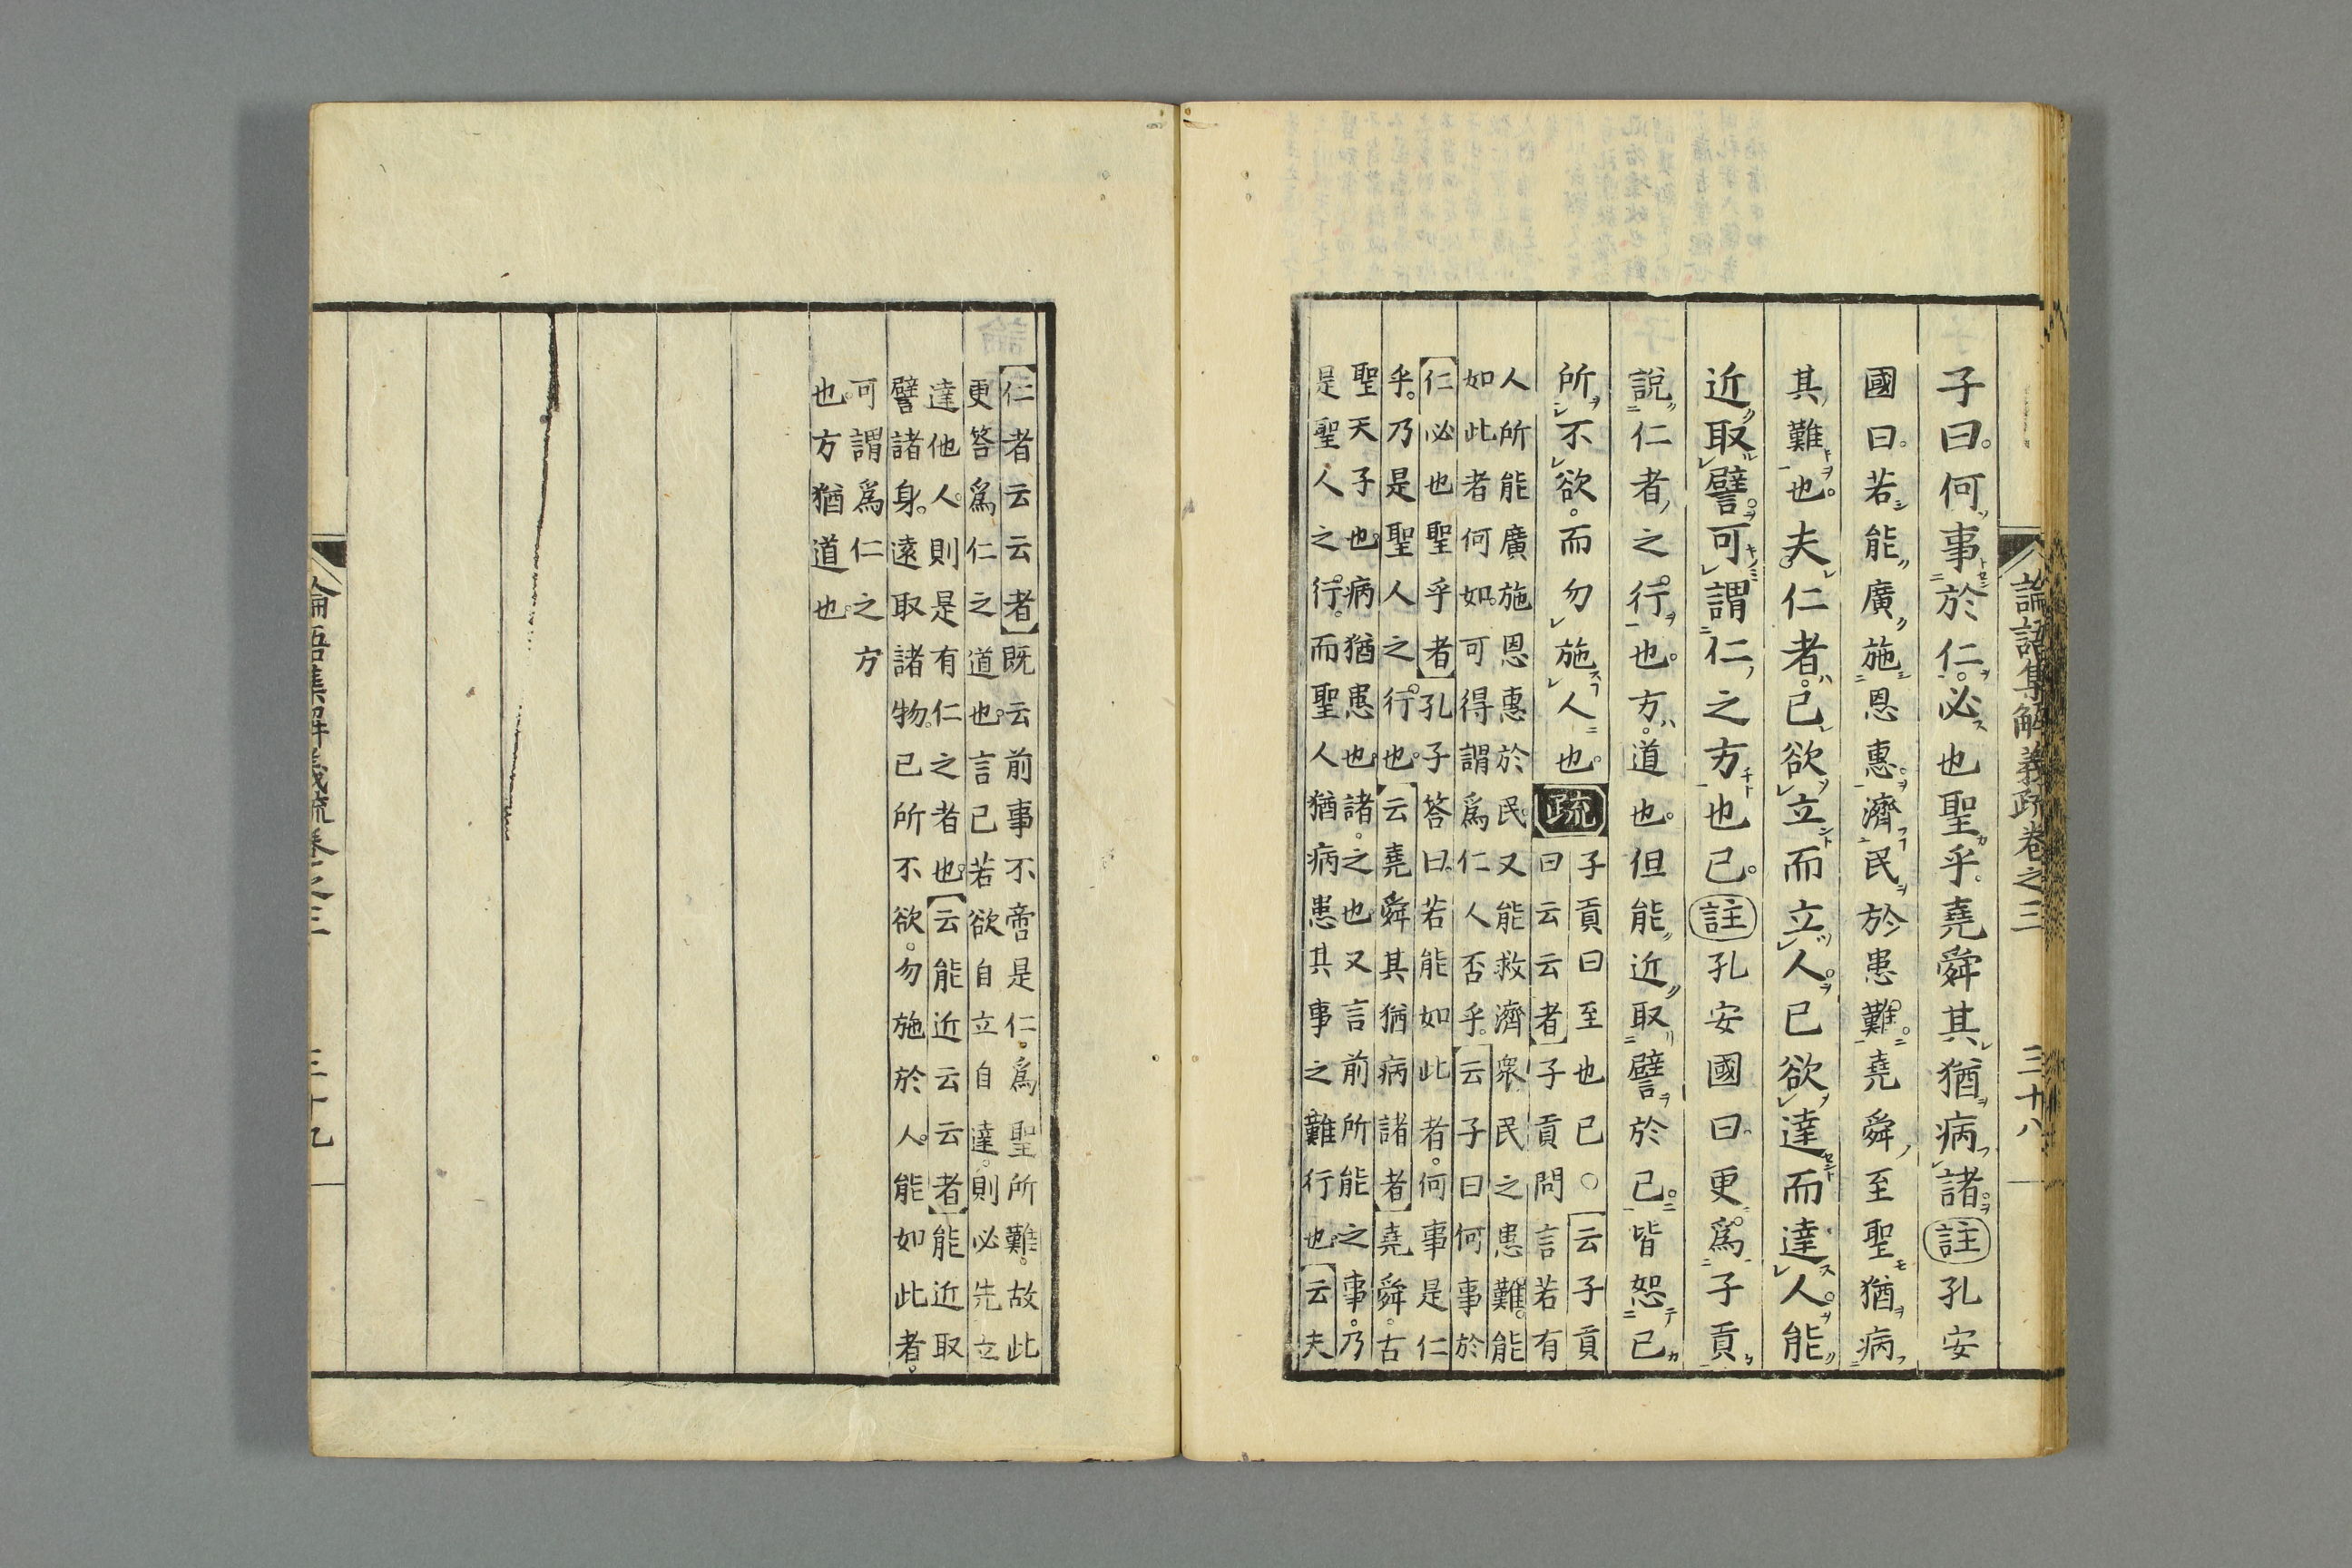 論語集解義疏卷之三 三十八
子曰何事於仁必也聖乎堯舜其猶病諸註孔安
國曰若能廣施恩惠濟民於患難堯舜至聖猶病
其難也夫仁者己欲立而立人己欲達而達人能
近取譬可謂仁之方也已註孔安國曰更爲子貢
說仁者之行也方道也但能近取譬於己皆恕己
所不欲而勿施人也疏
子貢曰至也已○云子貢
曰云云者子貢問言若有
人所能廣施恩惠於民又能救濟衆民之患難能
如此者何如可得謂爲仁人否乎云子曰何事於
仁必也聖乎者孔子答曰若能如此者何事是仁
乎乃是聖人之行也云堯舜其猶病諸者堯舜古
聖天子也病猶患也諸之也又言前所能之事乃
是聖人之行而聖人猶病患其事之難行也云夫
仁者云云者既云前事不啻是仁爲聖所難故此
更答爲仁之道也言己若欲自立自達則必先立
達他人則是有仁之者也云能近云云者能近取
譬諸身遠取諸物己所不欲勿施於人能如此者
可謂爲仁之方
也方猶道也
論語集解義疏卷之三 三十九